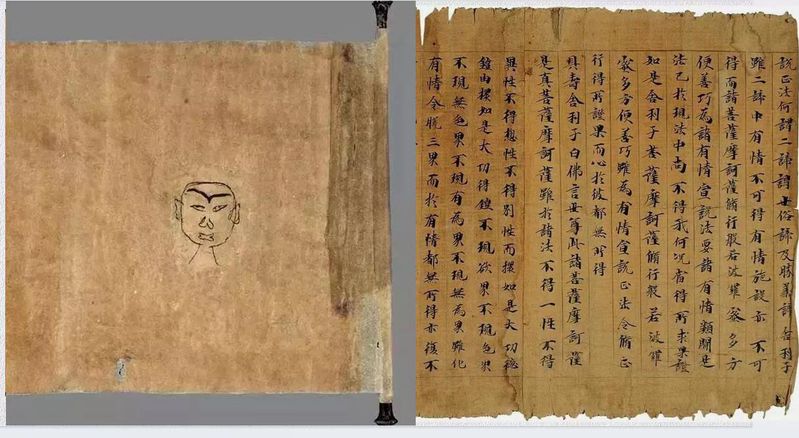 說正法何謂二諦謂世俗諦及勝義諦舍利子
雖二諦中有情不可得有情施設亦不可
得而諸菩薩摩訶薩脩行般若波羅蜜多方
便善巧為諸有情宣說法要諸有情類聞是
法已於現法中尚不得我何況當得所求果證
如是舍利子菩薩摩訶薩脩行般若波羅
蜜多方便善巧雖為有情宣說正法令脩正
行得所證果而心於彼都無所得
具壽舍利子白佛言世尊此諸菩薩摩訶薩
是真菩薩摩訶薩雖於諸法不得一性不得
異性不得總性不得別性而擐如是大功德
鎧由擐如是大功得鎧不現欲界不現色界
不現無色界不現有為界不現無為界雖化
有情令脫三界而於有情都無所得亦復不